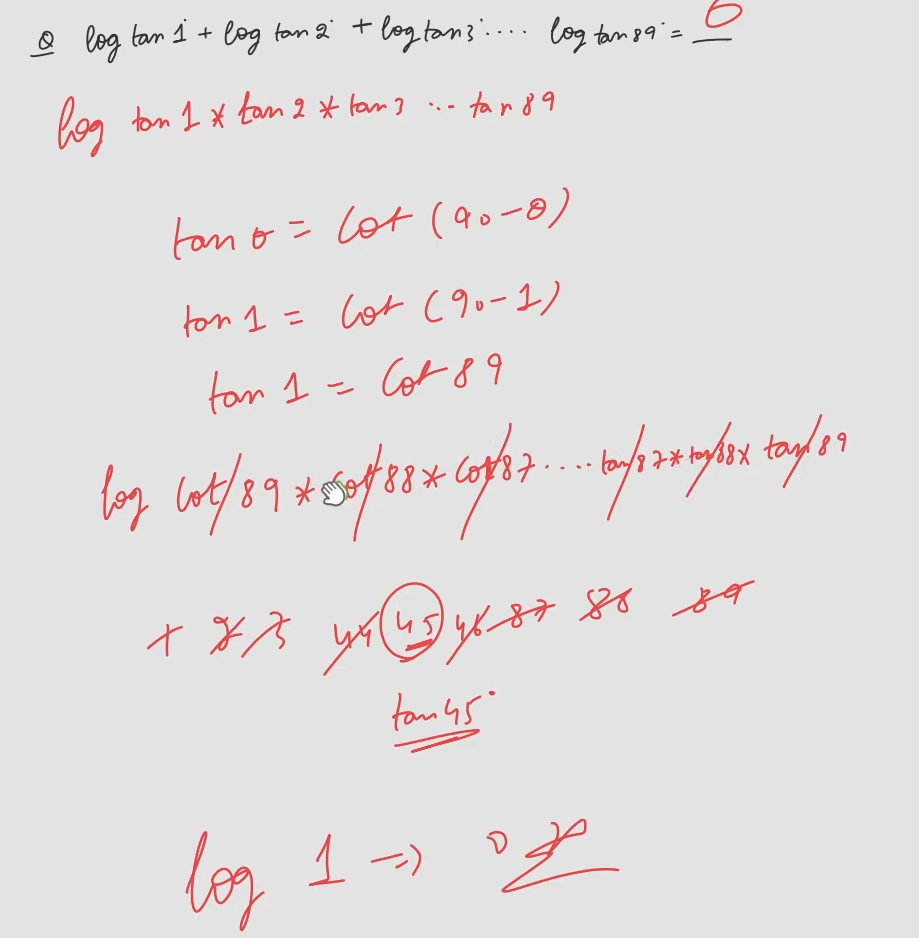 Q log tan 1° + log tan 2° + log tan 3° .... log tan 89° = 0
log tan 1 * tan 2 * tan 3 ... tan 89
tan θ = Cot (90-θ)
tan 1 = Cot (90-1)
tan 1 = Cot 89
log Cot 89 * Cot 88 * Cot 87 .... tan 87 * tan 88 * tan 89
1 2 3 44 45 46 87 88 89
tan 45°
log 1 => 0